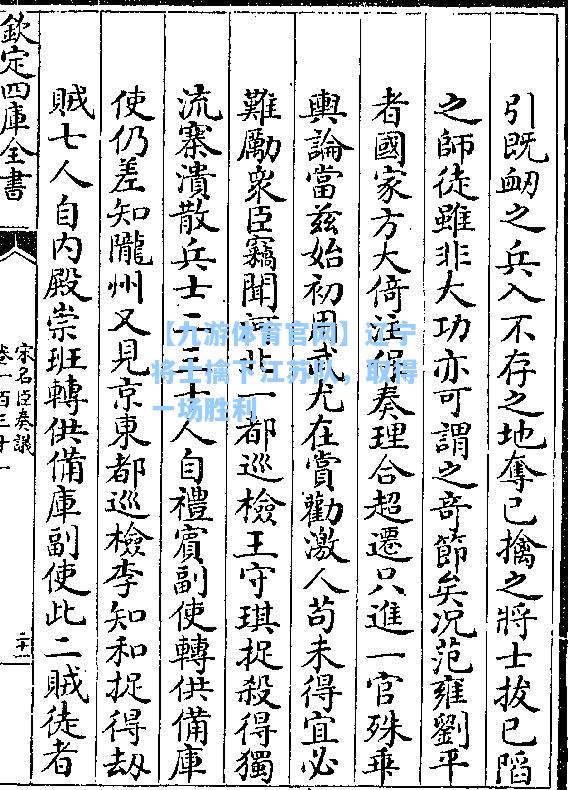 引既衂之兵入不存之地奪已擒之將士拔已䧟
之師徒雖非大功亦可謂之奇節矣况范雍劉平
者國家方大倚注保奏理合超遷只進一官殊乖
輿論當兹始初用武尤在賞勸激人苟未得宜必
難勵衆臣竊聞河北一都巡檢王守琪捉殺得獨
流寨潰散兵士二三十人自禮賓副使轉供備庫
使仍差知隴州又見京東都巡檢李知和捉得刼
賊七人自内殿崇班轉供備庫副使此二賊徒者
欽定四庫全書
宋名臣奏議
卷一百三十一
二十一
【九游体育官网】辽宁
将士擒下江苏队，取得
一场胜利